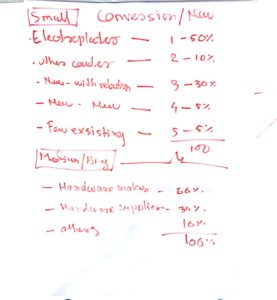 Small Conversion/New
- Electroplaters — 1 - 50%
- other couders — 2 - 10%
- New - with relation — 3 - 30%
- New - New — 4 - 5%
- Few exsisting — 5 - 5%
100
Medium/Big
- Hardware maker - 60%
- Hardware supplier - 30%
- others 10%
100%